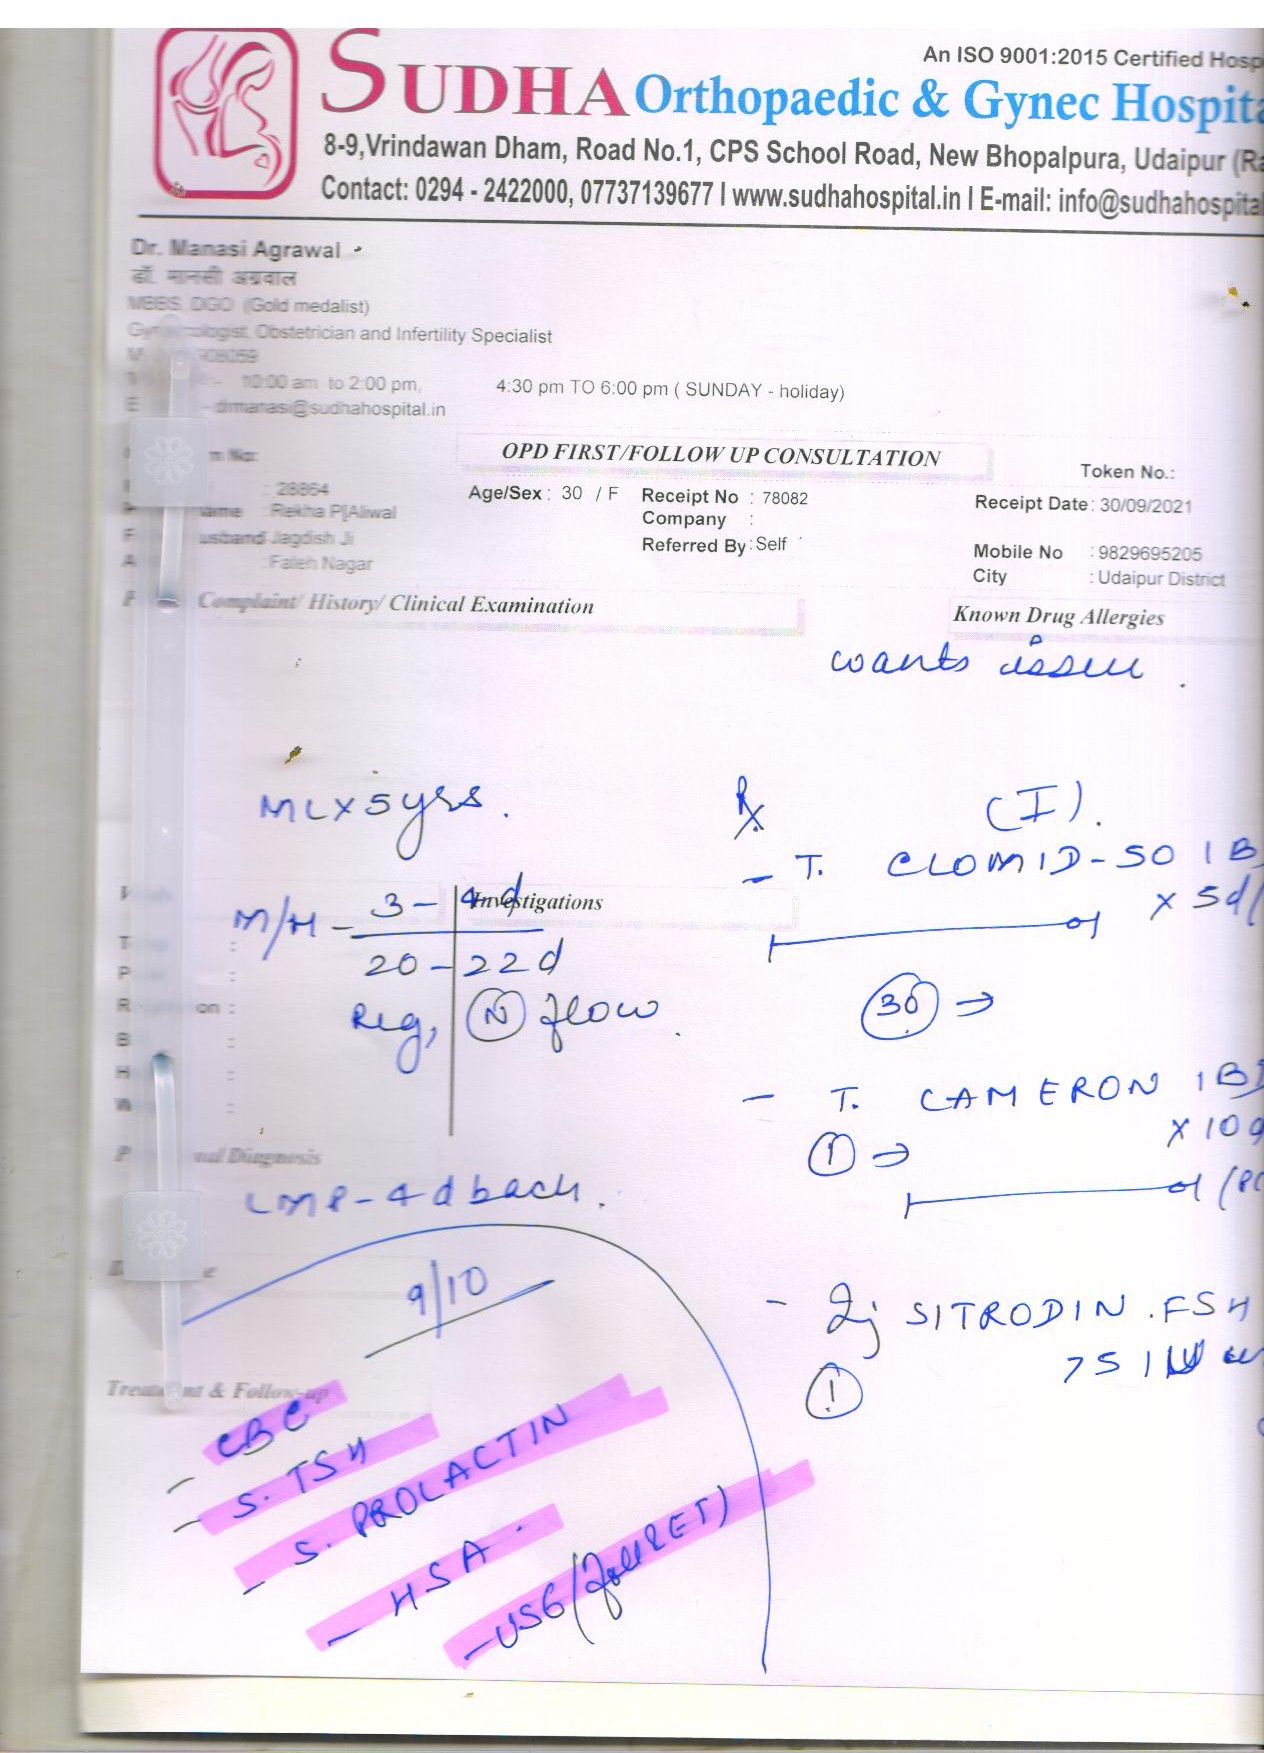 An ISO 9001:2015 Certified Hosp
SUDHA Orthopaedic & Gynec Hospita
8-9,Vrindawan Dham, Road No.1, CPS School Road, New Bhopalpura, Udaipur (Ra
Contact: 0294 - 2422000, 07737139677 I www.sudhahospital.in I E-mail: info@sudhahospital
Dr. Manasi Agrawal
डॉ. मानसी अग्रवाल
MBBS, DGO (Gold medalist)
Obstetrician and Infertility Specialist
10:00 am to 2:00 pm, 4:30 pm TO 6:00 pm ( SUNDAY - holiday)
drmanasi@sudhahospital.in
OPD FIRST/FOLLOW UP CONSULTATION
Token No.:
: 28864 Age/Sex : 30 / F Receipt No : 78082 Receipt Date: 30/09/2021
: Rekha P[Aliwal Company :
usband Jagdish Ji Referred By : Self Mobile No : 9829695205
: Nagar City : Udaipur District
Complaint/ History/ Clinical Examination Known Drug Allergies
wants issue.
MLX5yrs.
℞ (I).
- T. CLOMID-50 1 B
x 5d/
M/H - 3-4d Investigations
20-22d
Reg, (N) flow.
(30) →
- T. CAMERON 1B
x 10
(1) →
nal Diagnosis
LMP-4d back.
9/10
- Inj SITRODIN.FSH
75 IU
(1)
Treatment & Follow-up
- CBC
- S. TSH
- S. PROLACTIN
- HSA.
- USG